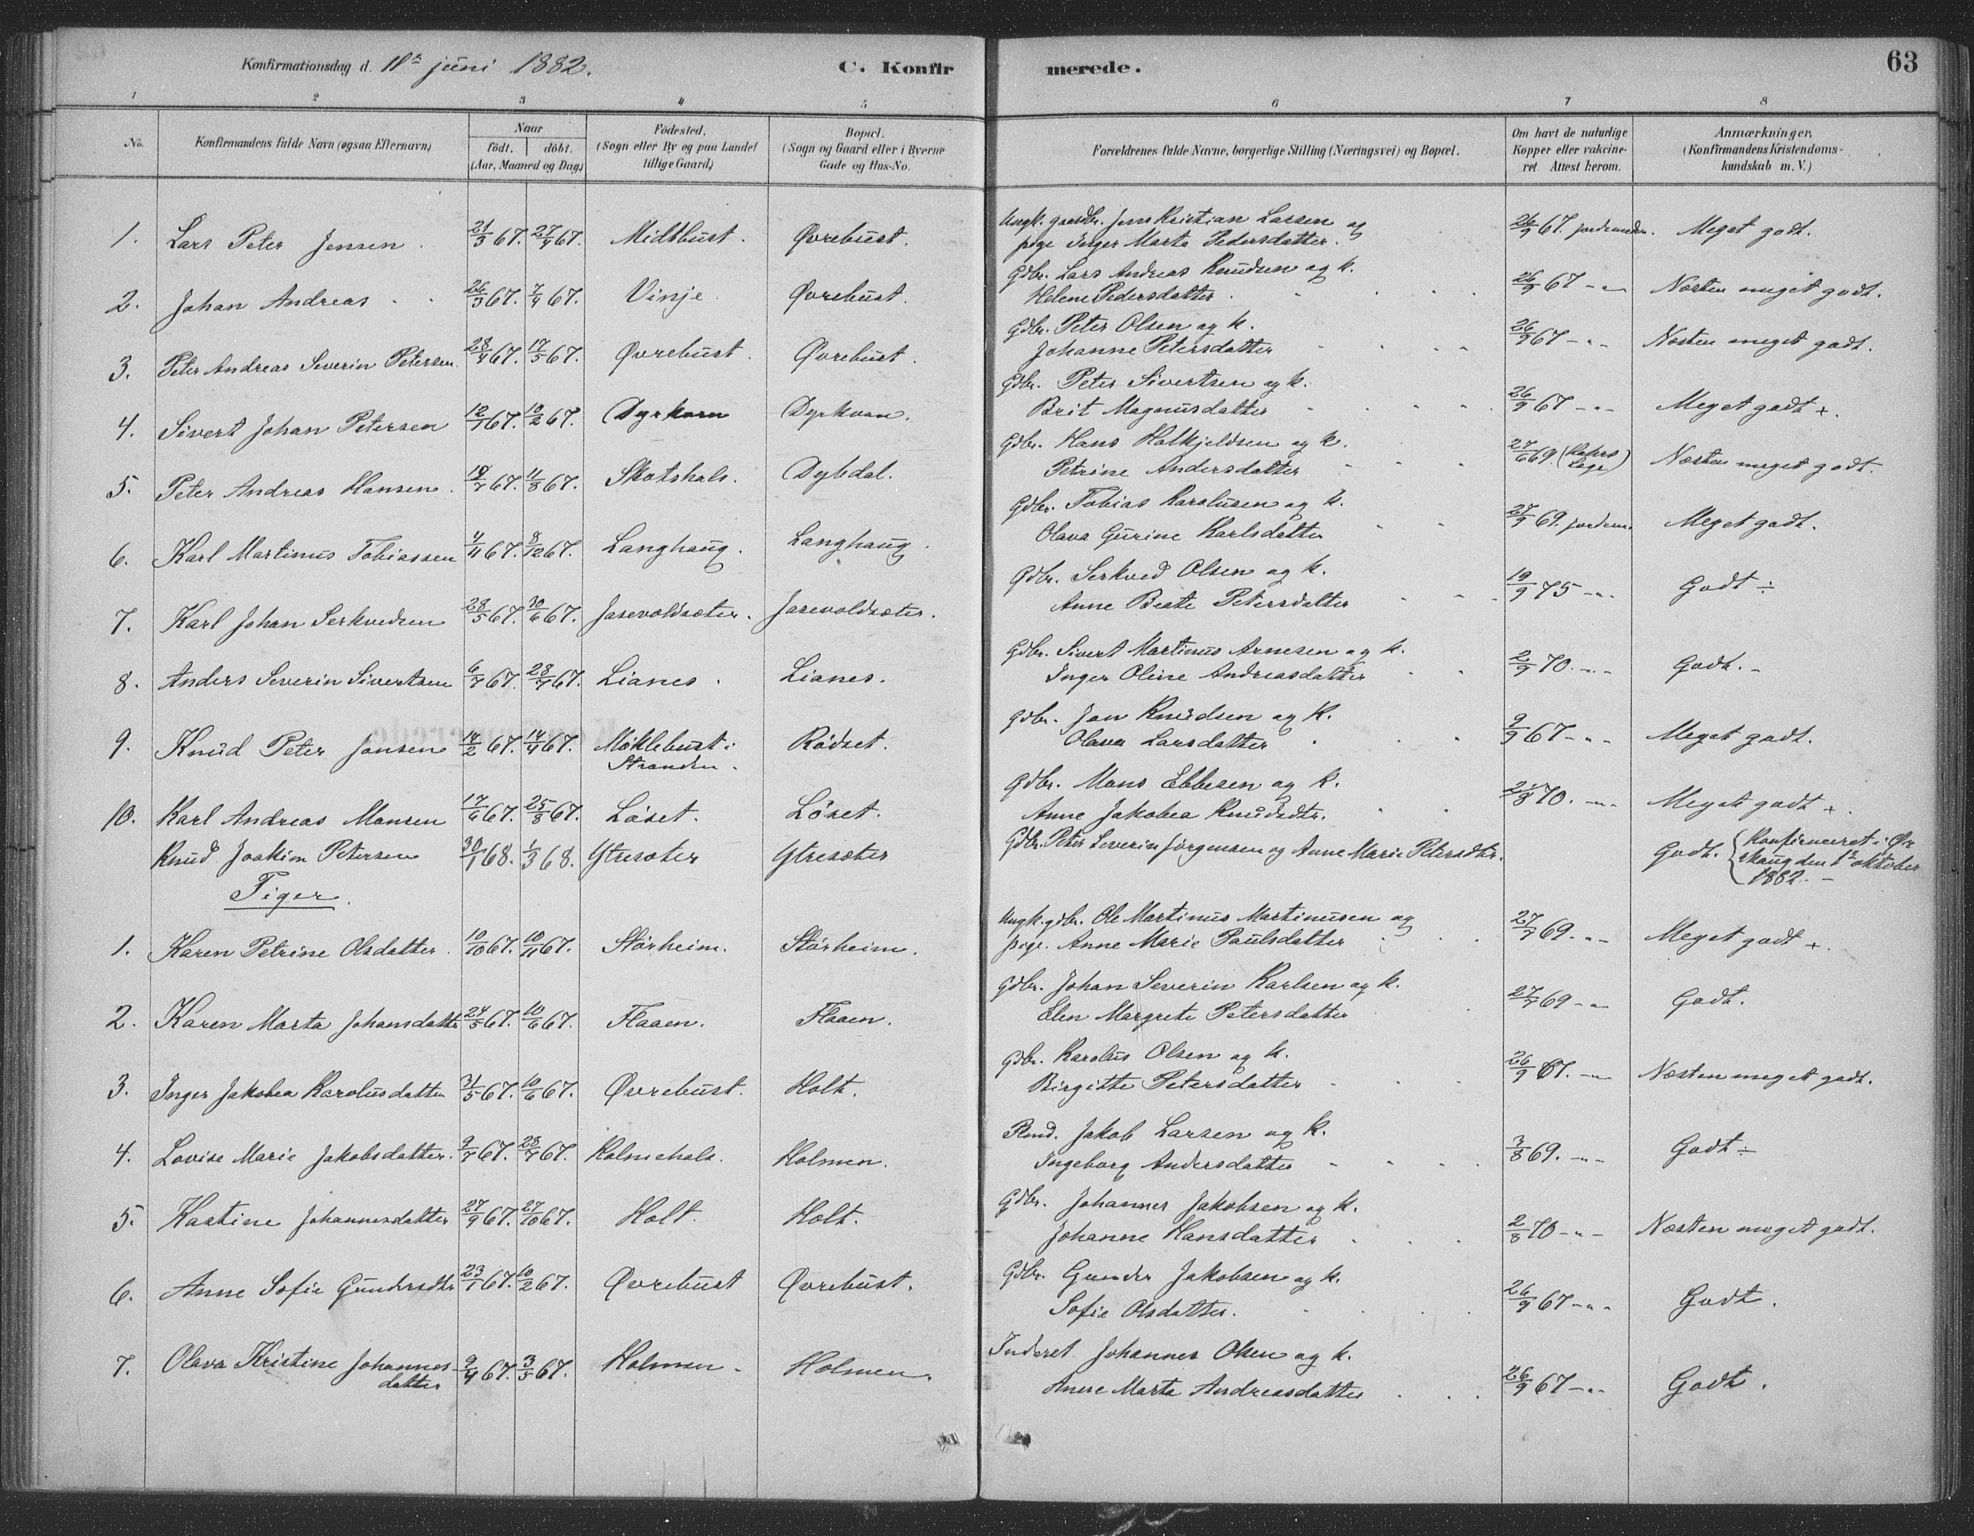 Konfirmationsdag d. 11te juni 1882. C. Konfir merede. 63
1 2 3 4 5 6 7 8
No. Konfirmandens fulde Navn (ogsaa Efternavn) Naar født. døbt. (Aar, Maaned og Dag) Fødested. (Sogn eller By og paa Landet tillige Gaard) Bopæl. (Sogn og Gaard eller i Byerne Gade og Hus-No. Forældrenes fulde Navne, borgerlige Stilling (Næringsvei) og Bopæl. Om havt de naturlige Kopper eller vakcineret. Attest herom. Anmærkninger. (Konfirmandens Kristendomskundskab m. V.)
1. Lars Peter Jensen. 21/3 67. 27/4 67. Midtbust. Øvrebust. Ungk. gaardbr. Jens Kristian Larsen og 26/9 67. jordemdr. Meget godt.
pige Inger Marta Pedersdatter.
2. Johan Andreas 26/3 67. 7/4 67. Vinje. Øvrebust. Gdbr. Lars Andreas Knudsen og k. 26/9 67 -"- Næsten meget godt.
Helene Pedersdatter.
3. Peter Andreas Severin Petersen. 28/4 67. 17/5 67. Øvrebust. Øvrebust. Gdbr. Peter Olsen og k. 26/9 67 -"- Næsten meget godt.
Johanne Petersdatter
4. Sivert Johan Petersen 12/1 67. 10/2 67. Dyrkorn Dyrkorn. Gdbr. Peter Sivertsen og k. 26/9 67 -"- Meget godt +.
Brit Magnusdatter
5. Peter Andreas Hansen. 67. 11/8 67. Skotshals. Dybdal. Gdbr. Hans Halkjeldsen og k. 27/6 69. Næsten meget godt.
Petrine Andersdatter
6. Karl Martinus Tobiassen 4/11 67. 8/12 67. Langhaug. Langhaug. Gdbr. Tobias Karolusen og k. 27/9 69. jordem. Meget godt.
Olava Gurine Karlsdatter
7. Karl Johan Serkvedsen 23/5 67. 30/6 67. Jarevoldsæter. Jarevoldsæter. Gdbr. Serkved Olsen og k. 19/9 75 -"- Godt ÷
Anne Beate Petersdatter
8. Anders Severin Sivertsen 6/7 67. 28/7 67. Lianes. Lianes. Gdbr. Sivert Martinus Arnesen og k. 2/9 70. -"- Godt. -
Inger Oline Andreasdatter
9. Knud Peter Jonsen 14/2 67. 14/4 67. Møklebust i Rødset. Gdbr. Jon Knudsen og k. 9/9 67 -"- Meget godt.
Stranden. Olava Larsdatter
10. Karl Andreas Monsen 17/6 67. 25/8 67. Løset. Løset. Gdbr. Mons Ebbesen og k. 2/8 70. -"- Meget godt +.
Anne Jakobea Knudsdtr.
Knud Joakim Petersen 30/1 68. 1/3 68. Ytresæter Ytresæter Gdbr. Peter Severin Jørgensen og Anne Marie Petersdtr. Godt. Konfirmeret i Ør
skoug den 1ste oktober
1882. -
Piger.
1. Karen Petrine Olsdatter. 10/10 67. 10/11 67. Størheim. Størheim. Ungk. gdbr. Ole Martinus Martinusen og 27/7 69. -"- Meget godt +.
pige. Anne Marie Paulsdatter
2. Karen Marta Johansdattr 24/5 67. 10/6 67. Flaaen. Flaaen. Gdbr. Johan Severin Karlsen og k. 27/7 69 -"- Godt.
Elen Margrete Petersdatter
3. Inger Jakobea Karolusdatter 31/5 67. 10/6 67. Øvrebust. Holt. Gdbr. Karolus Olsen og k. 26/9 67. -"- Næsten meget godt.
Birgitte Petersdatter
4. Lovise Marie Jakobsdatter. 9/7 67. 28/7 67. Holmehals. Holmen. Jakob Larsen og k. 3/8 69. -"- Godt ÷
Ingeborg Andersdatter
5. Kastine Johannesdatter 27/9 67. 27/10 67. Holt. Holt. Gdbr. Johannes Jakobsen og k. 2/8 70 -"- Næsten meget godt.
Johanne Hansdatter
6. Anne Sofie Gundersdtr 23/1 67. 10/2 67. Øvrebust Øvrebust. Gdbr. Gunder Jakobsen og k. 26/9 67 -"- Godt.
Sofie Olsdatter.
7. Olava Kristine Johannes 9/4 67. 3/5 67. Holmen. Holmen. Inderst Johannes Olsen og k. 26/9 67 -"- Godt.
datter Anne Marta Andreasdatter